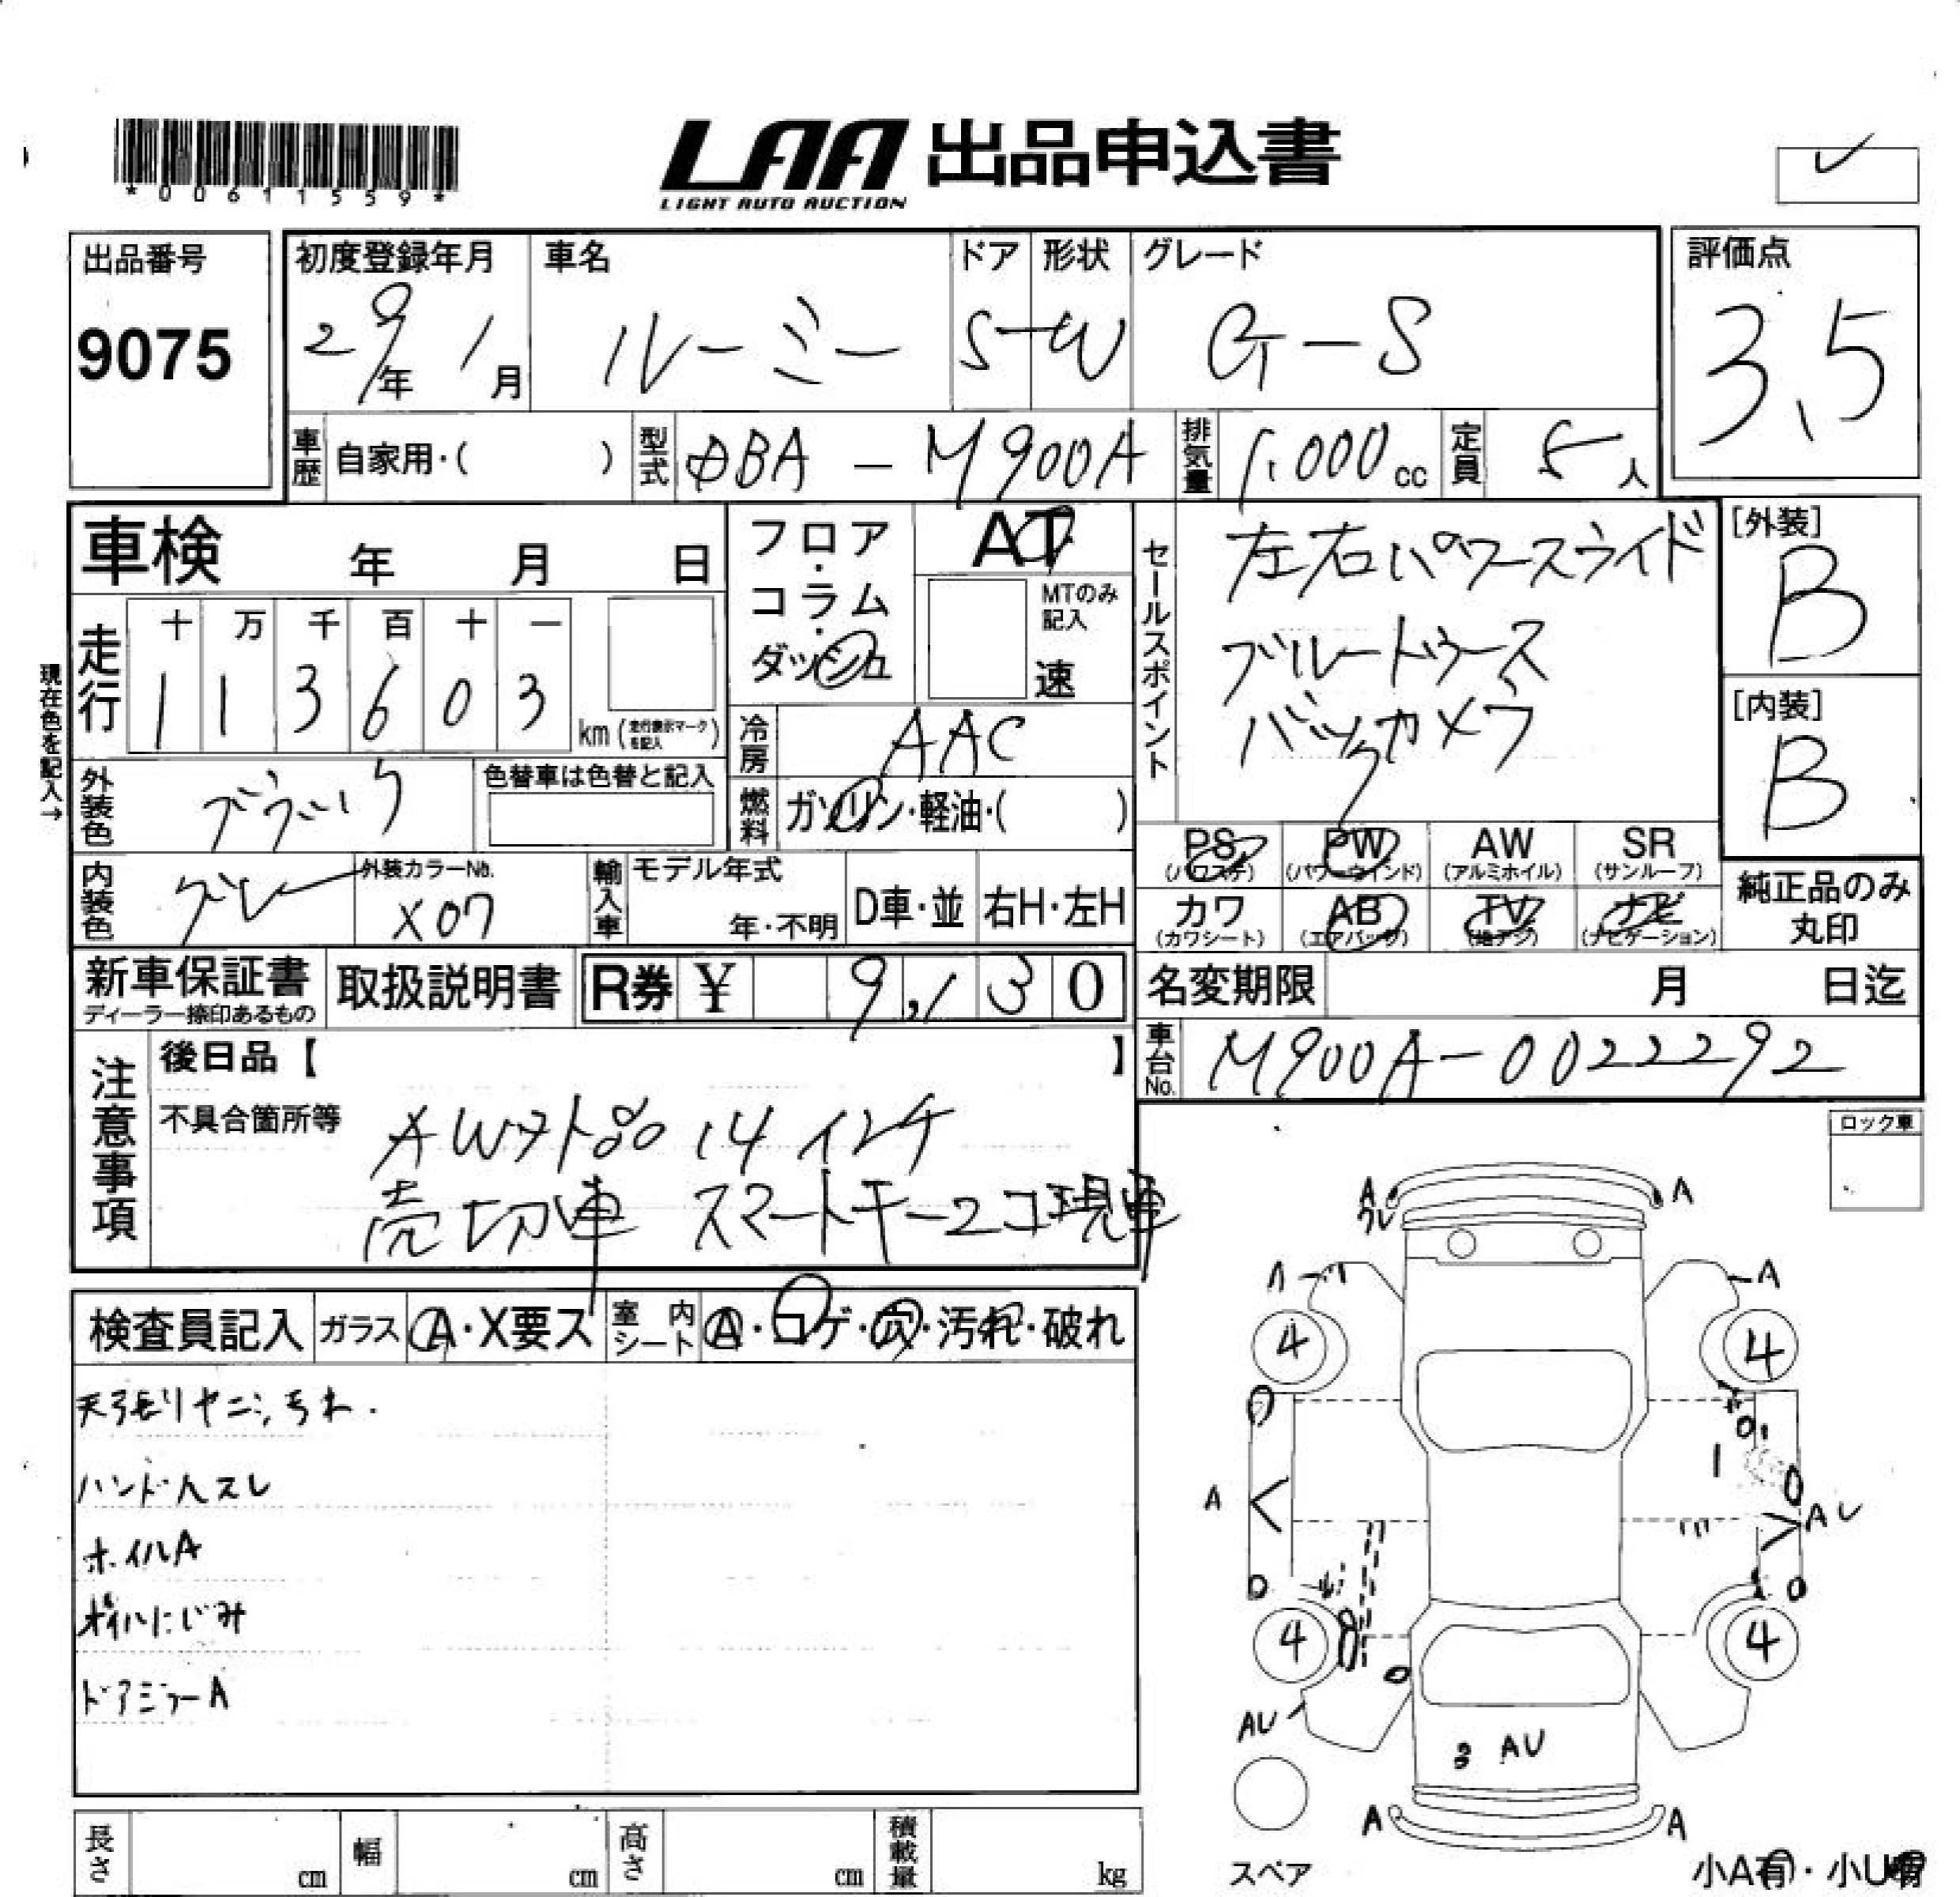 *00611559*
LAA 出品申込書
LIGHT AUTO AUCTION
出品番号
9075
初度登録年月
29年 1月
車名
ルーミー
ドア
5
形状
W
グレード
G-S
評価点
3.5
車歴
自家用・( )
型式
DBA-M900A
排気量
1.000cc
定員
5人
車検 年 月 日
フロア・コラム・ダッシュ
AT
MTのみ記入
速
セールスポイント
左右パワースライド
ブルートゥース
バックカメラ
[外装]
B
[内装]
B
現在色を記入→
走行
十 万 千 百 十 一
1 1 3 6 0 3
km (走行表示マークを記入)
冷房
AAC
外装色
ブラック
色替車は色替と記入
燃料
ガソリン・軽油・( )
PS (パワステ)
PW (パワーウインド)
AW (アルミホイル)
SR (サンルーフ)
カワ (カワシート)
AB (エアバッグ)
TV (地デジ)
ナビ (ナビゲーション)
純正品のみ
丸印
内装色
グレー
外装カラーNo.
X07
輸入車
モデル年式
年・不明
D車・並
右H・左H
新車保証書
ディーラー捺印あるもの
取扱説明書
R券 ¥ 9,130
名変期限 月 日迄
車台No.
M900A-0022292
注意事項
後日品【 】
不具合箇所等
AW外品 14インチ
売切車 スマートキー2コ現車
ロック車
検査員記入
ガラス
A・X要ス
室内シート
A・コゲ・穴・汚れ・破れ
天張りヤニ、汚れ.
ハンドルスレ
ホイルA
オイルにじみ
ドアミラーA
A A
クレ
A A
4 4
A AU
4 4
AU
3 AU
A A
スペア
小A有・小U有
長さ cm
幅 cm
高さ cm
積載量 kg